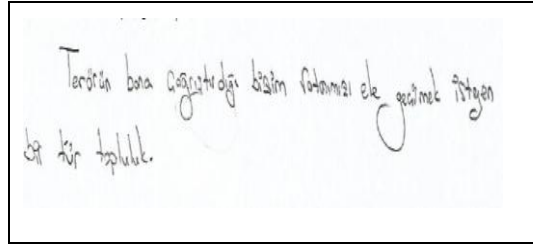 Terörün bana çağrıştırdığı bizim vatanımızı ele geçirmek isteyen
bir tür topluluk.